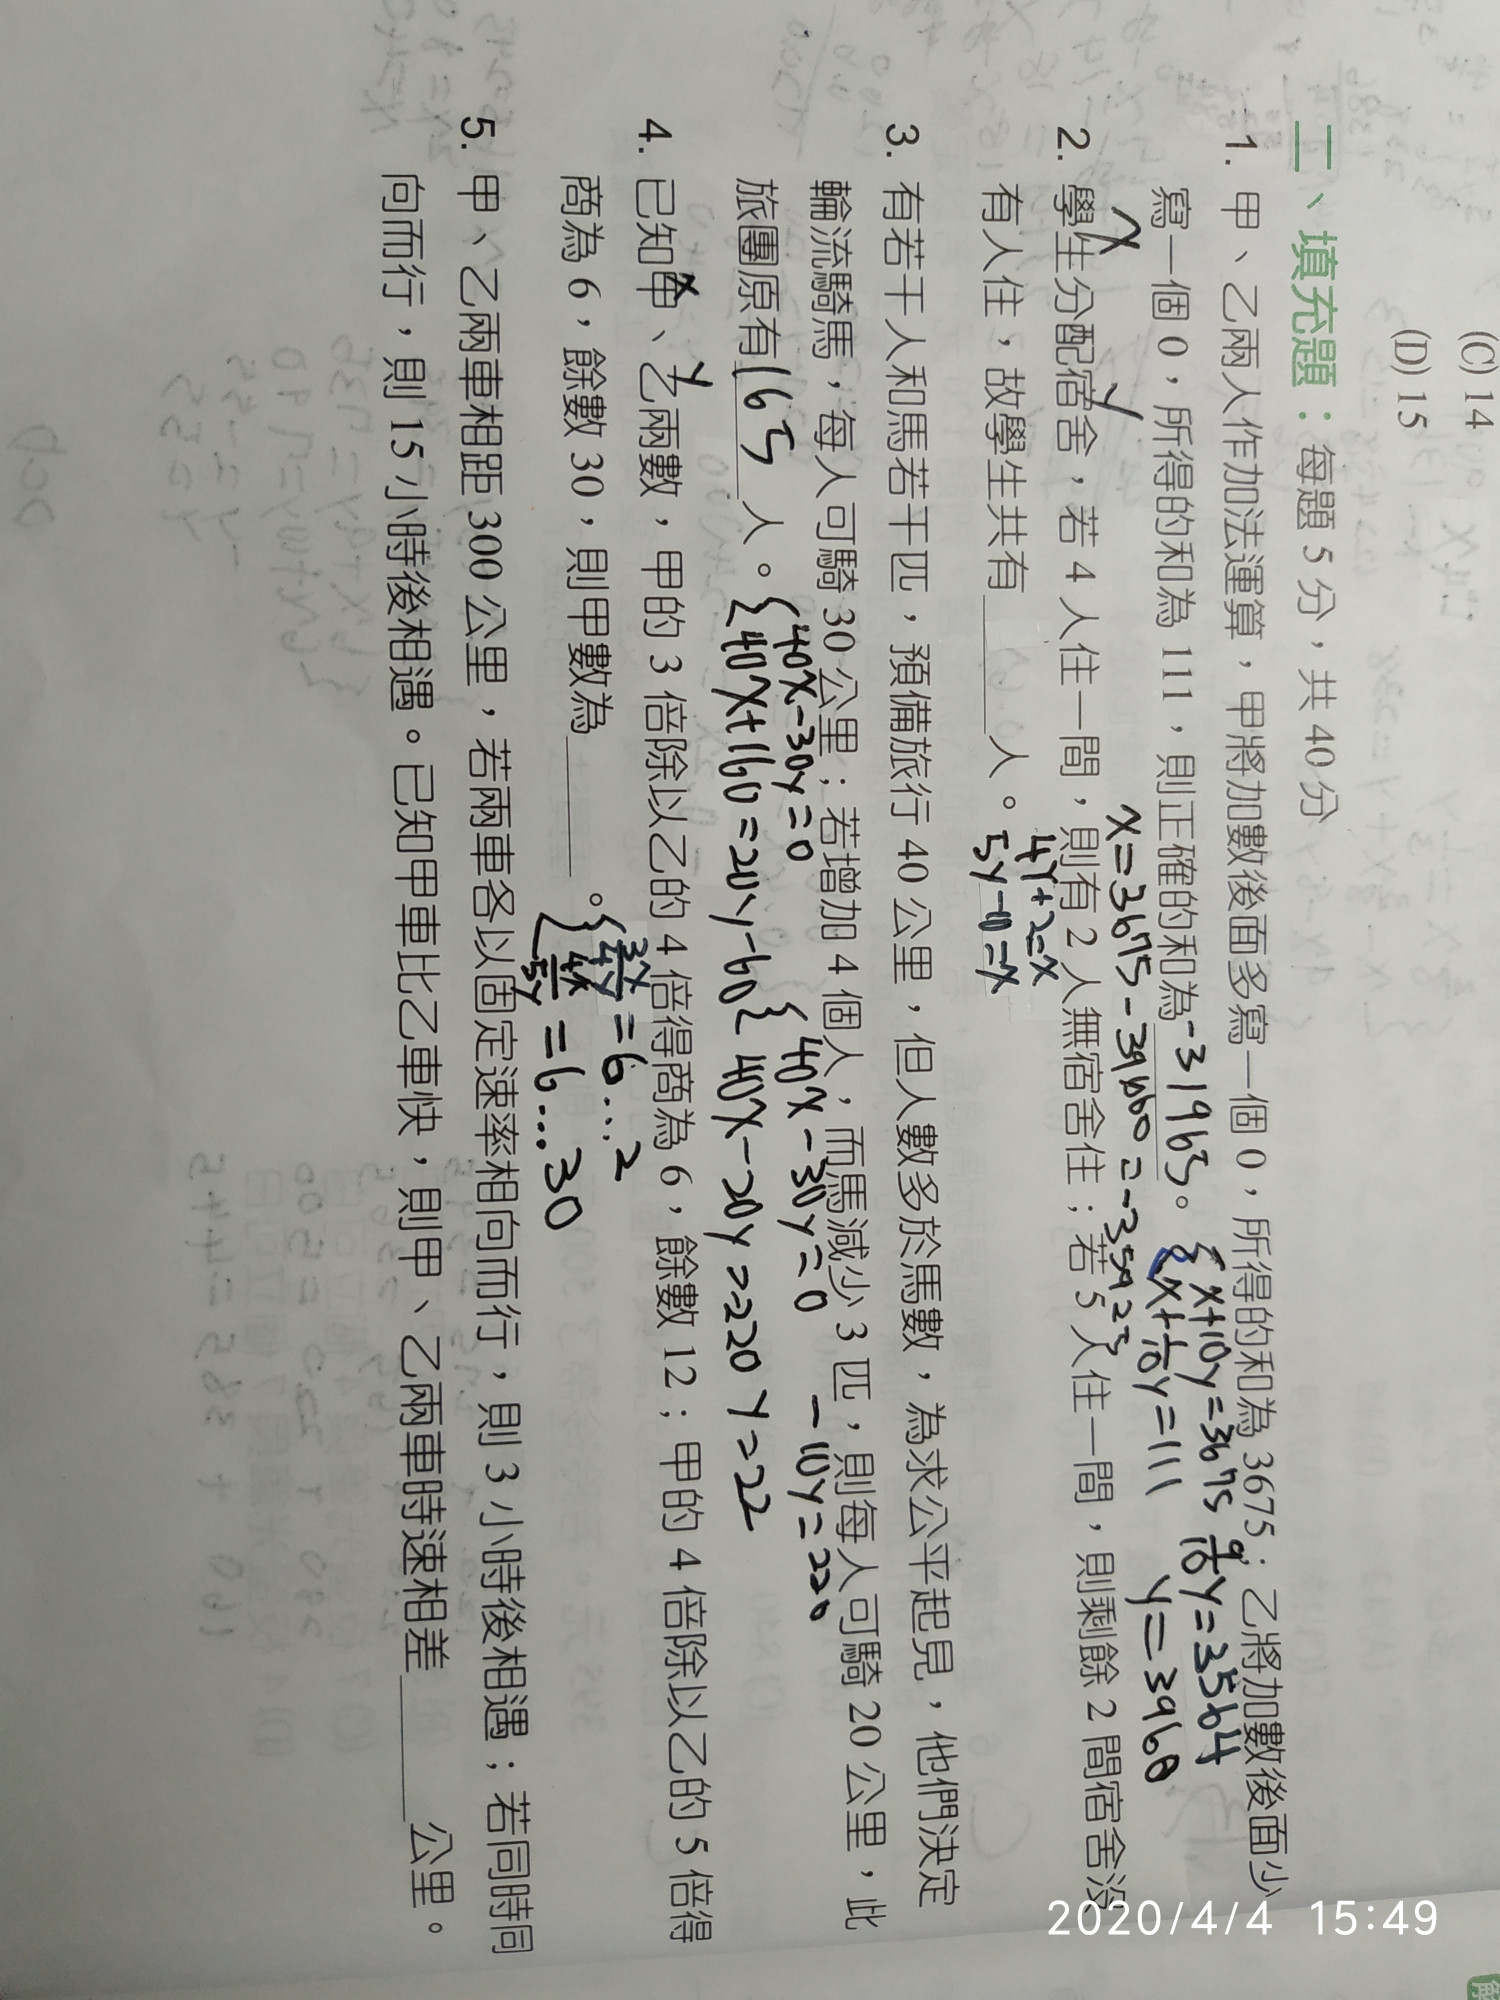 (C) 14
(D) 15
二、填充題：每題 5 分，共 40 分
1. 甲、乙兩人作加法運算，甲將加數後面多寫一個 0，所得的和為 3675；乙將加數後面少
寫一個 0，所得的和為 111，則正確的和為 -31965。
{ x+10y=3675
x+1/10y=111
9/10y=3564
y=3960
x=3675-39600=-35925
2. 學生分配宿舍，若 4 人住一間，則有 2 人無宿舍住；若 5 人住一間，則剩餘 2 間宿舍沒
x
y
有人住，故學生共有______人。
4y+2=x
3. 有若干人和馬若干匹，預備旅行 40 公里，但人數多於馬數，為求公平起見，他們決定
輪流騎馬，每人可騎 30 公里；若增加 4 個人，而馬減少 3 匹，則每人可騎 20 公里，此
旅團原有 165 人。
{ 40x-30y=0
40x+160=20y-60
{ 40x-30y=0
40x-20y=220
-10y=220
y=22
4. 已知甲、乙兩數，甲的 3 倍除以乙的 4 倍得商為 6，餘數 12；甲的 4 倍除以乙的 5 倍得
x
y
商為 6，餘數 30，則甲數為______。
{ 3x/4y=6…2
4x/5y=6…30
5. 甲、乙兩車相距 300 公里，若兩車各以固定速率相向而行，則 3 小時後相遇；若同時同
向而行，則 15 小時後相遇。已知甲車比乙車快，則甲、乙兩車時速相差______公里。
2020/4/4 15:49